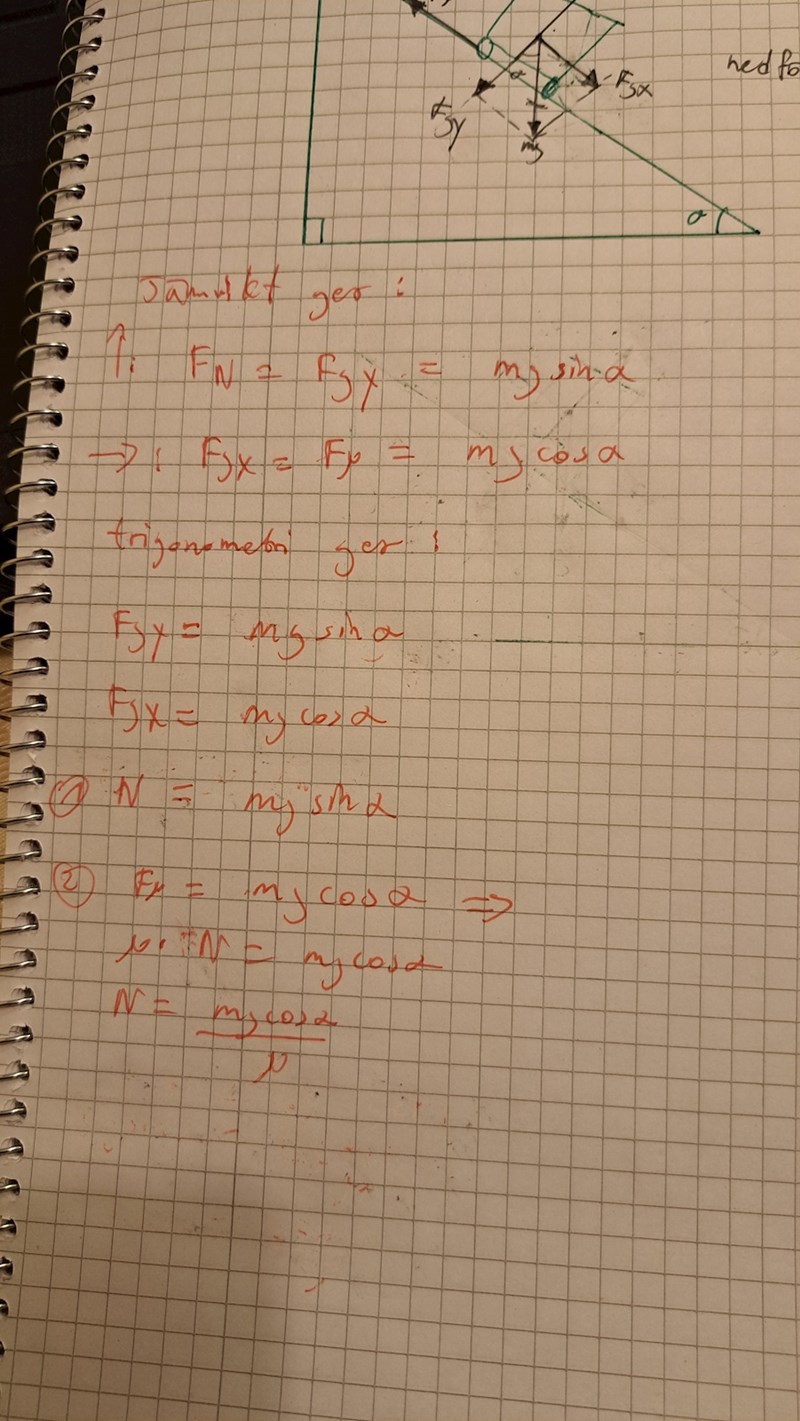 ned fo
α
Fgx
Fgy
mg
α
Jämvikt ger :
↑: FN = Fgy = mg sin α
→: Fgx = Fμ = mg cos α
trigonometri ger :
Fgy = mg sin α
Fgx = mg cos α
① N = mg sin α
② Fμ = mg cos α ⇒
μ · N = mg cos α
N = mg cos α / μ